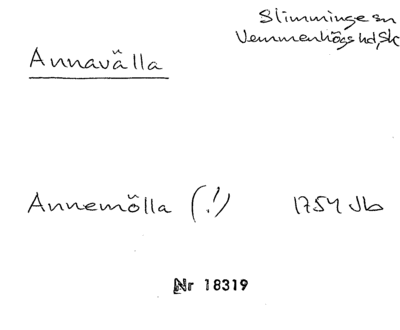 Slimminge sn
Vemmenhögs hd, Sk
Annavälla
Annemölla (!) 1754 Jb
Nr 18319